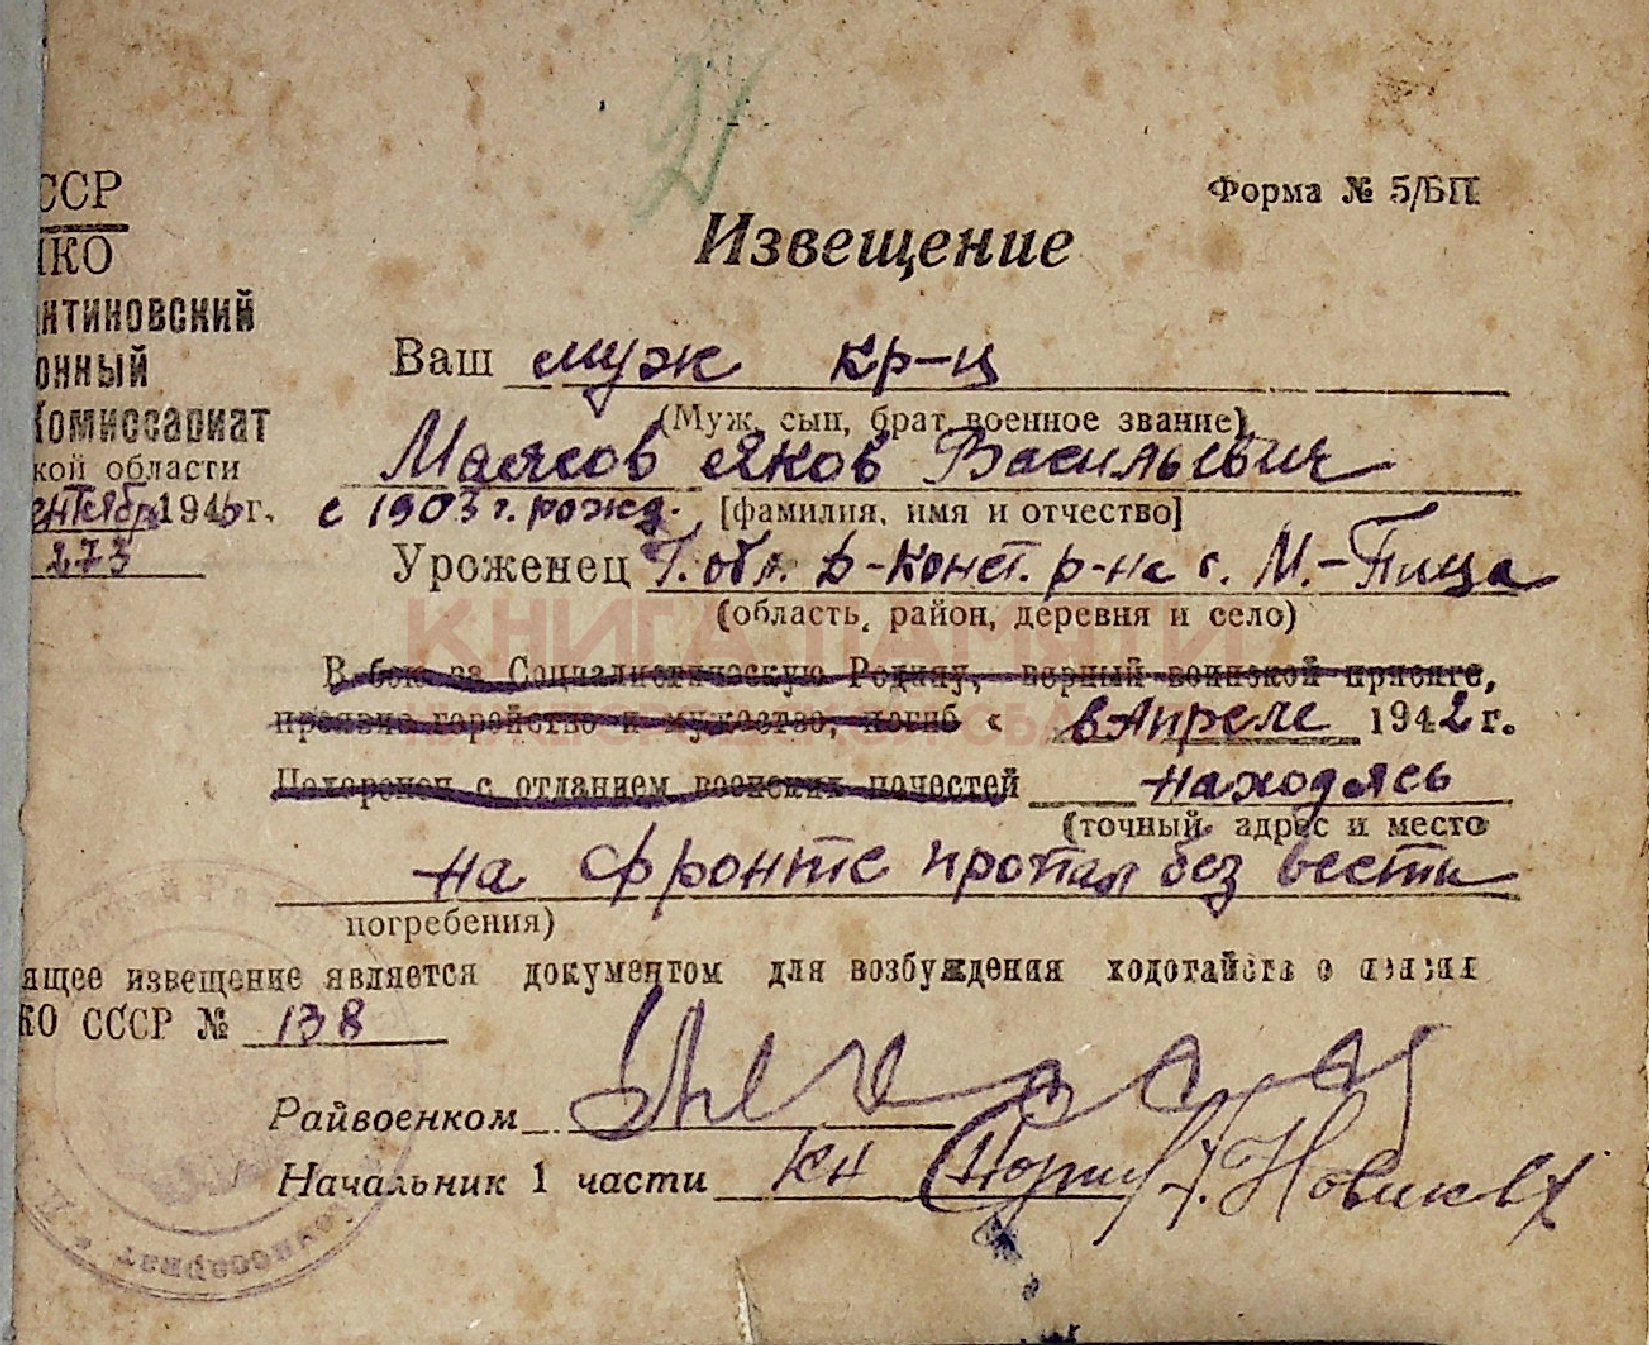 СССР
НКО
Форма № 5/БП
Извещение
нтиновский
онный
Комиссариат
кой области
ентября 1946 г.
273
Ваш муж кр-ц
(Муж, сын, брат военное звание)
Маясов Яков Васильевич
с 1903 г. рожд. [фамилия, имя и отчество]
Уроженец Г. обл. Д-Конст. р-на с. М.-Пица
(область, район, деревня и село)
КНИГА ПАМЯТИ
НИЖЕГОРОДСКОЙ ОБЛАСТИ
В бою за Социалистическую Родину, верный воинской присяге,
проявив геройство и мужество, погиб « в Апреле 1942 г.
Похоронен с отданием воинских почестей находясь
(точный адрес и место
на фронте пропал без вести
погребения)
ящее извещение является документом для возбуждения ходотайства о
КО СССР № 138
Райвоенком
Начальник 1 части